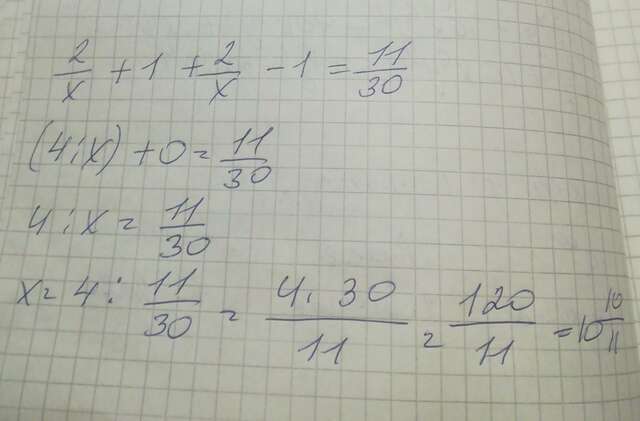 2/x + 1 + 2/x - 1 = 11/30
(4:x) + 0 = 11/30
4:x = 11/30
x = 4 : 11/30 = 4·30/11 = 120/11 = 10 10/11